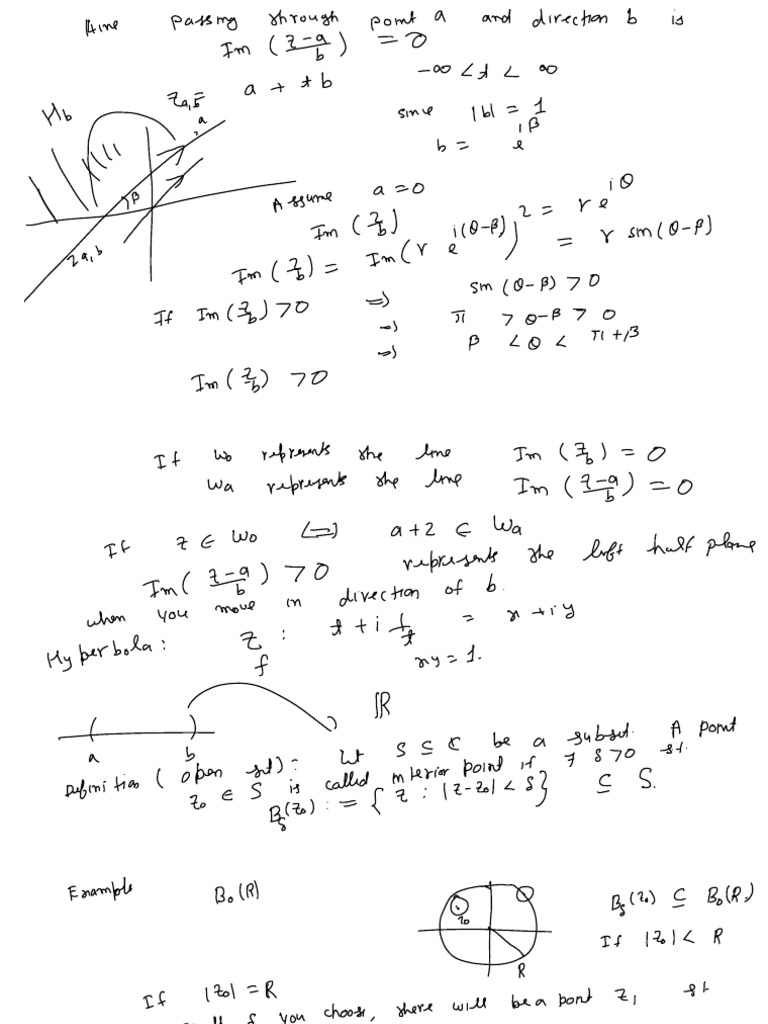 line passing through point a and direction b is
Im (z-a/b) = 0
z_{a,b} = a + tb -∞ < t < ∞
H_b a since |b| = 1
b = e^{iβ}
β Assume a = 0
Im (z/b) z = re^{iθ}
z_{a,b} Im (z/b) = Im (r e^{i(θ-β)}) = r sin(θ-β)
If Im (z/b) > 0 => sin (θ-β) > 0
=> π > θ-β > 0
=> β < θ < π+β
Im (z/b) > 0
If W_0 represents the line Im (z/b) = 0
W_a represents the line Im (z-a/b) = 0
If z ∈ W_0 <=> a+z ∈ W_a
Im (z-a/b) > 0 represents the left half plane
when you move in direction of b.
Hyperbola: z : t + i 1/t = x + iy
f xy = 1.
ℝ
a b
Definition (open set):- Let S ⊆ ℂ be a subset. A point
z_0 ∈ S is called interior point if ∃ δ > 0 st.
B_δ(z_0) := { z : |z-z_0| < δ } ⊆ S.
Example B_0(R) z_0 B_δ(z_0) ⊆ B_0(R)
If |z_0| < R
R
If |z_0| = R
you choose, there will be a point z_1 st